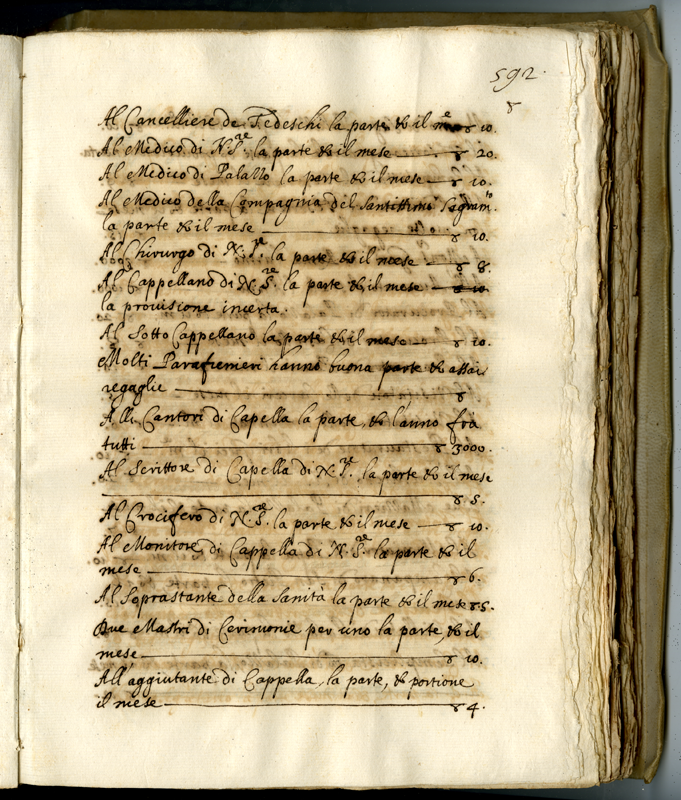 592.
Al Cancelliere de Tedeschi la parte, & il me ∀ 10.
Al Medico di N. S.re la parte & il mese — ∀ 20.
Al Medico di Palazzo la parte & il mese — ∀ 10.
Al Medico della Compagnia del Santissimo Sagram.to
la parte & il mese — ∀ 10.
Al Chirurgo di N. S.re la parte & il mese — ∀ 8.
Al Cappellano di N. S.re la parte & il mese — ∀ 10
la provisione incerta.
Al Sotto Cappellano la parte & il mese — ∀ 10.
Molti Parafrenieri hanno buona parte & assai
regaglie — ∀
Alli Cantori di Capella la parte, & l'anno frà
tutti — ∀ 3000.
Al Scrittore di Capella di N. S.re la parte & il mese
— ∀ 5.
Al Crocifero di N. S.re la parte & il mese — ∀ 10.
Al Monitore di Cappella di N. S.re la parte & il
mese — ∀ 6.
Al Soprastante della Sanità la parte & il mese ∀ 5.
Due Mastri di Cerimonie per uno la parte, & il
mese — ∀ 10.
All'aggiutante di Cappella, la parte, & portione
il mese — ∀ 4.